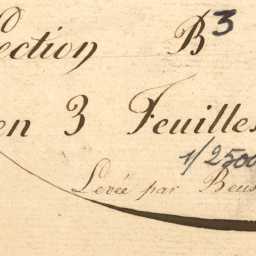 ection B 3
en 3 Feuilles
1/2500
Levée par Beus